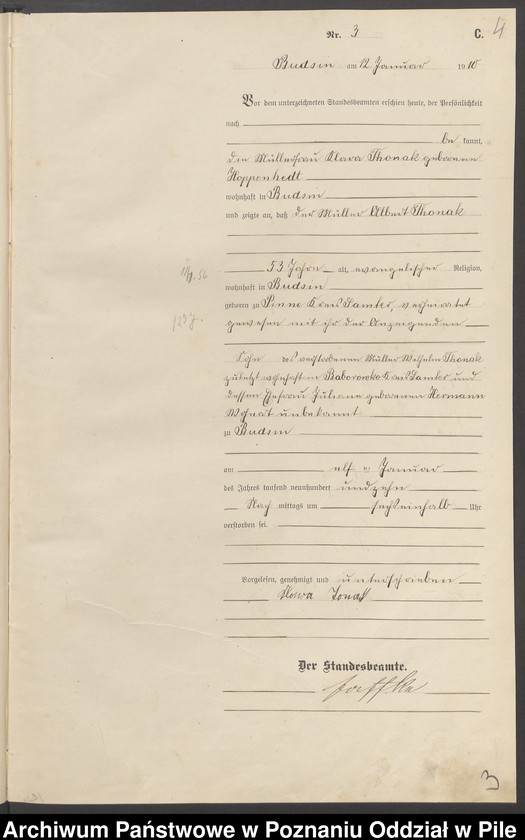 Nr. 3
C.
4
Budsin am 12. Januar 1910
Vor dem unterzeichneten Standesbeamten erschien heute, der Persönlichkeit
nach
be kannt,
die Müllerfrau Klara Thonak geborene
Koppenhedt
wohnhaft in Budsin
und zeigte an, daß der Müller Albert Thonak
53 Jahre alt, evangelischer Religion,
wohnhaft in Budsin
geboren zu Pinne Kreis Samter, verheiratet
gewesen mit ihr der Anzeigenden
Sohn des verstorbenen Müller Wilhelm Thonak
zuletzt wohnhaft in Baborowko Kreis Samter und
dessen Ehefrau Juliane geborenen Hermann
Wohnort unbekannt
zu Budsin
am elf Januar
des Jahres tausend neunhundert und zehn
Nach mittags um sechseinhalb Uhr
verstorben sei.
Vorgelesen, genehmigt und unterschrieben
Klara Tonak
Der Standesbeamte.
3
Archiwum Państwowe w Poznaniu Oddział w Pile